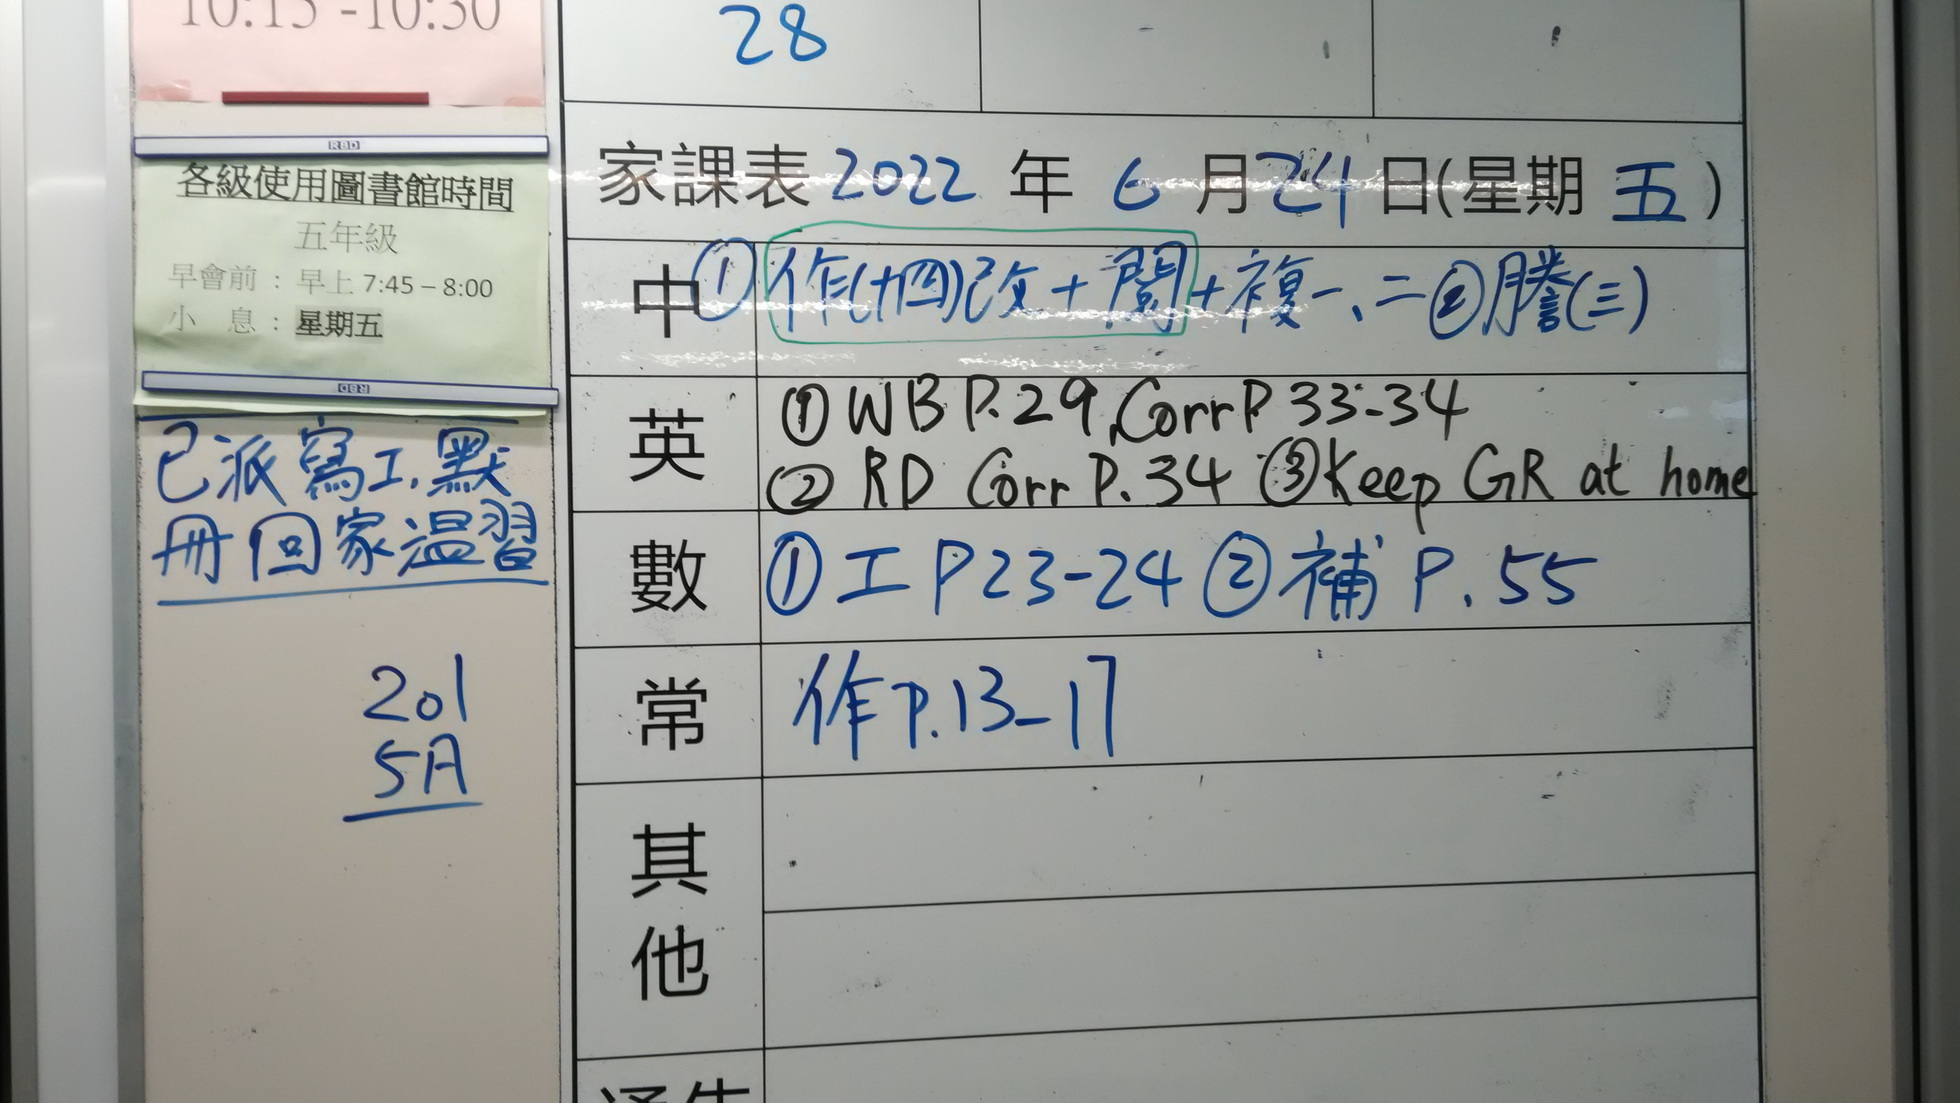 10:15 -10:30
RBD
各級使用圖書館時間
五年級
早會前 : 早上 7:45 – 8:00
小 息 : 星期五
RBD
已派寫工.默
冊回家溫習
201
5A
28
家課表 2022 年 6 月 24 日(星期 五)
中 ① 作(十四)改 + 閱 + 複一、二 ② 謄(三)
英 ① WB P.29, Corr P 33-34
② RD Corr P.34 ③ Keep GR at home
數 ① 工 P 23-24 ② 補 P.55
常 作 P.13-17
其
他
通告